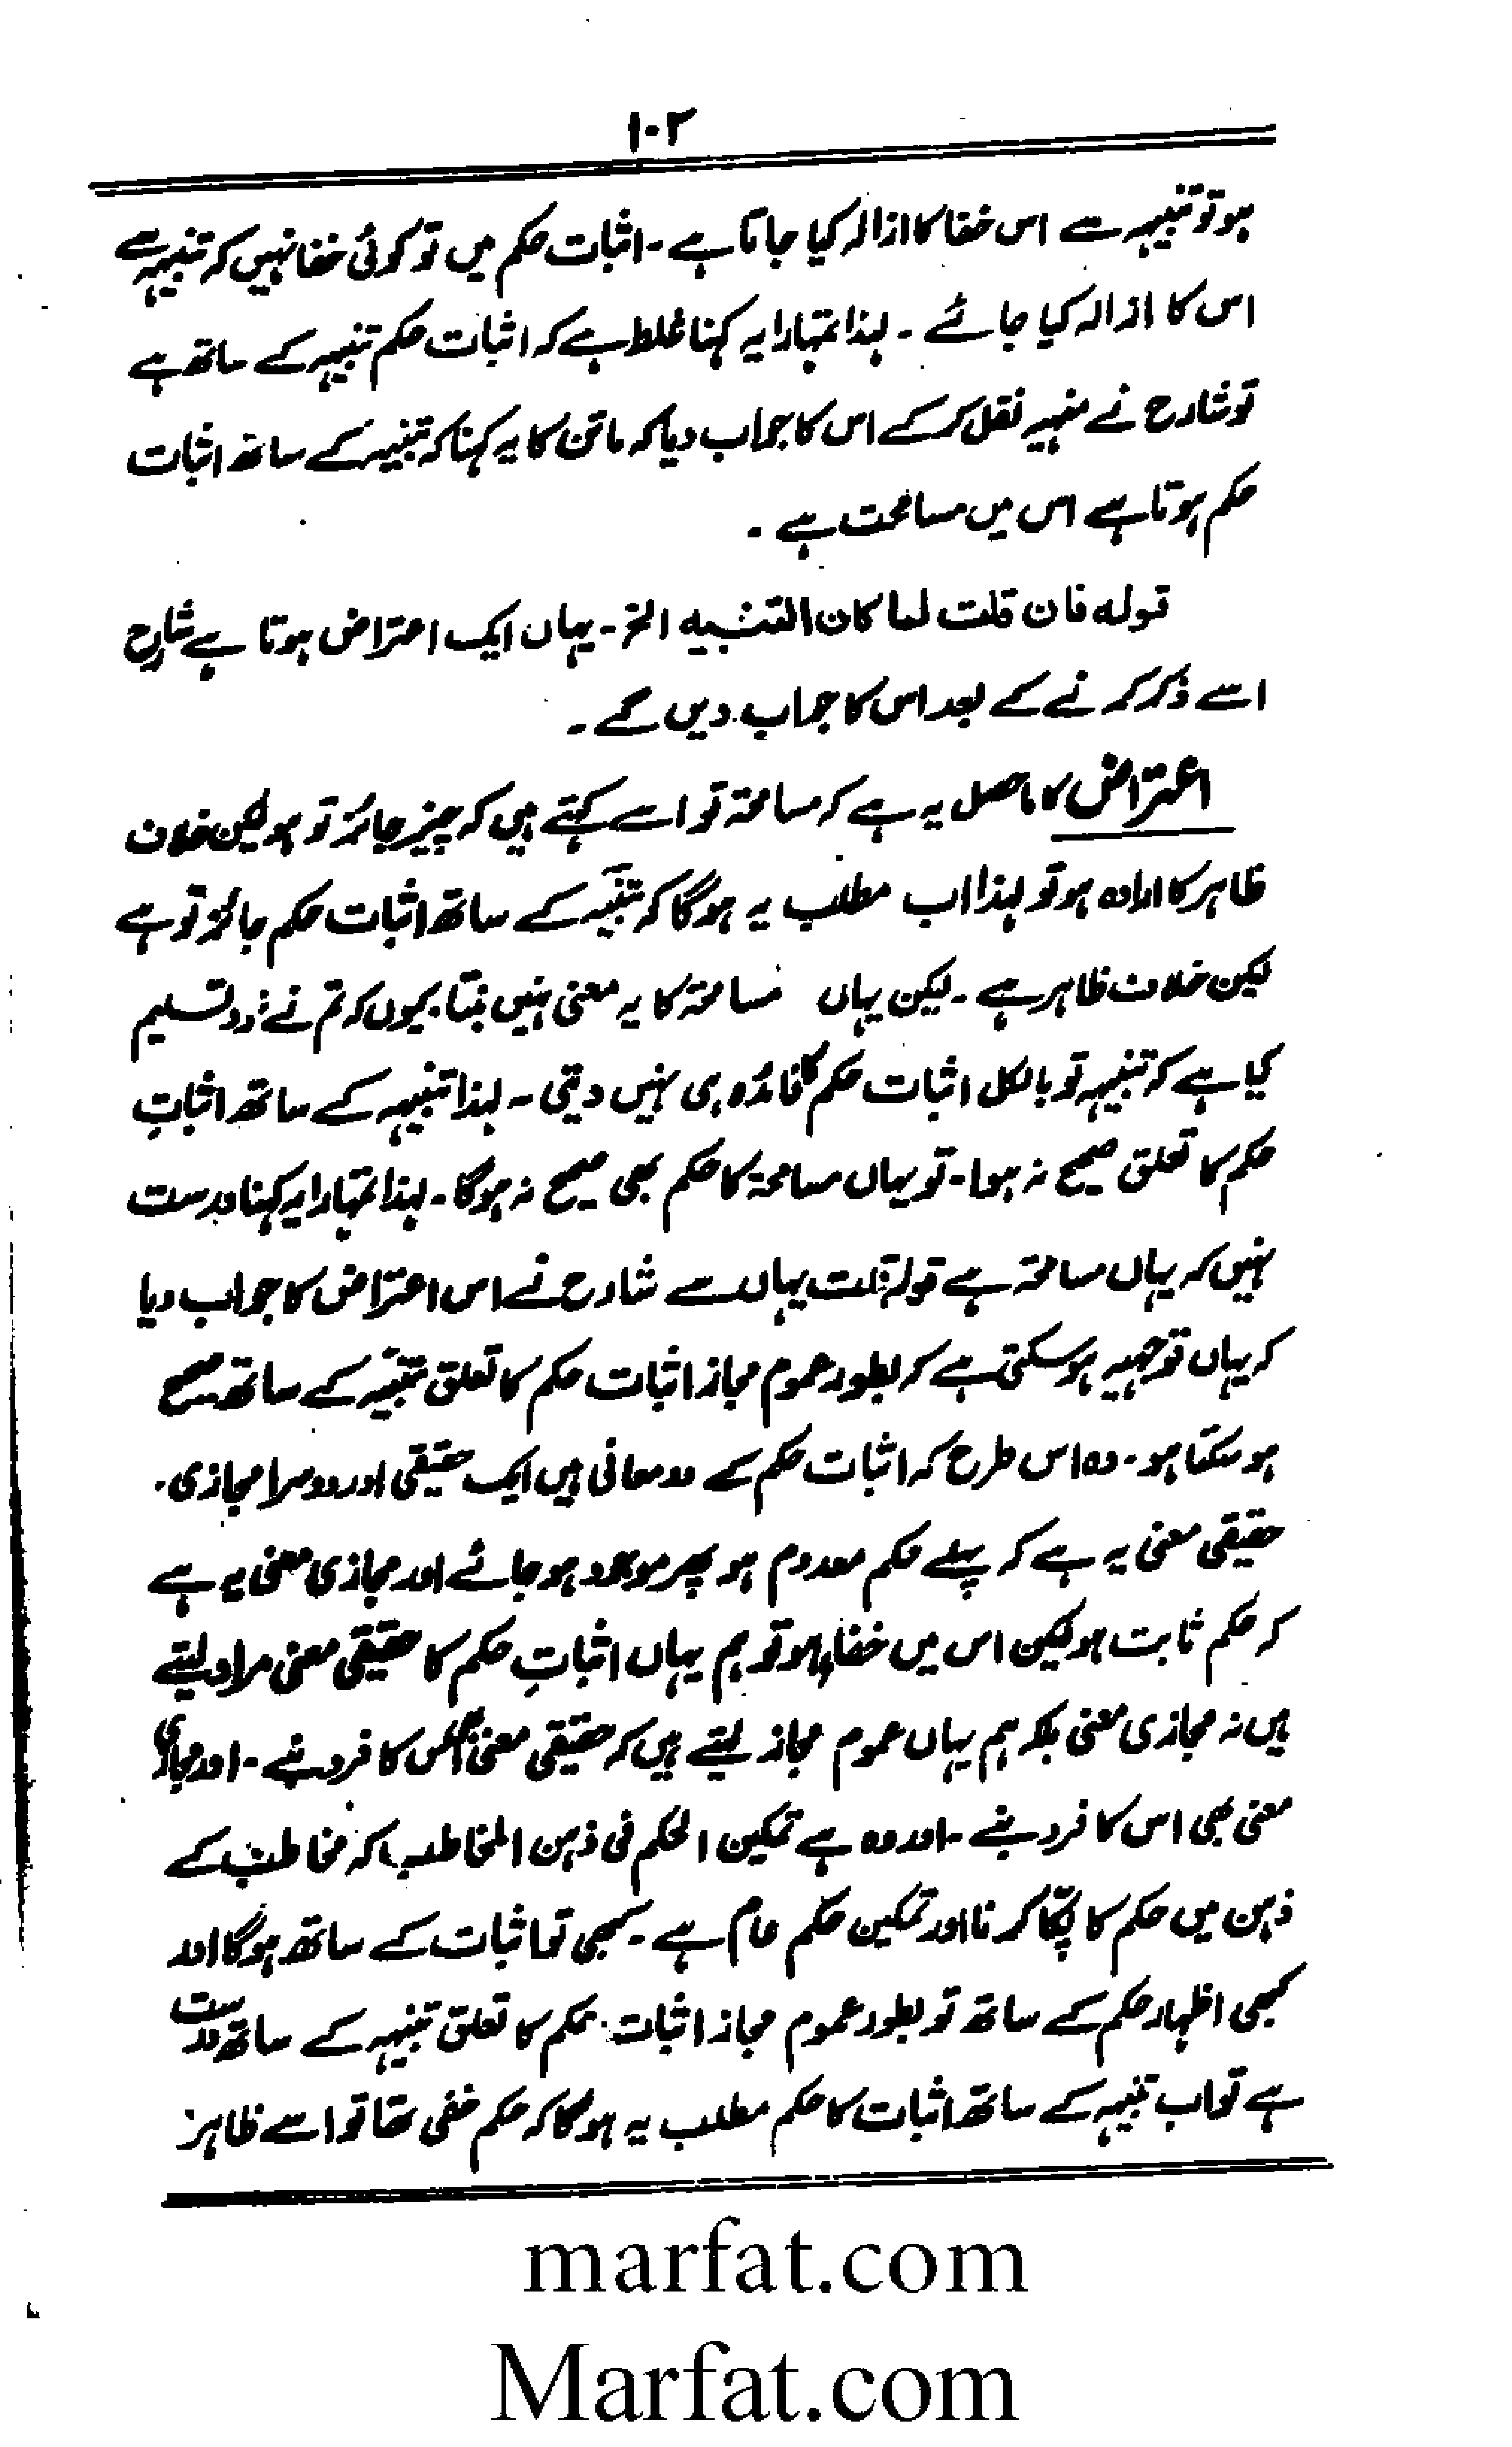 ۱۰۲
ہو تو تنبیہہ سے اس خفا کا ازالہ کیا جاتا ہے ۔ اثبات حکم میں تو کوئی خفا نہیں کہ تنبیہہ سے
اس کا ازالہ کیا جائے ۔ لہذا تمہارا یہ کہنا غلط ہے کہ اثبات حکم تنبیہہ کے ساتھ ہے
تو شارح نے منہیہ نقل کر کے اس کا جواب دیا کہ ماتن کا یہ کہنا کہ تنبیہہ کے ساتھ اثبات
حکم ہوتا ہے اس میں مسامحت ہے ۔
قوله فان قلت لما كان التنبيه الخ ۔ یہاں ایک اعتراض ہوتا ہے شارح
اسے ذکر کرنے کے بعد اس کا جواب دیں گے ۔
اعتراض کا ماحصل یہ ہے کہ مسامحۃ تو اسے کہتے ہیں کہ چیز جائز تو ہو لیکن خلاف
ظاہر کا ارادہ ہو تو لہذا اب مطلب یہ ہو گا کہ تنبیہ کے ساتھ اثبات حکم جائز تو ہے
لیکن خلاف ظاہر ہے ۔ لیکن یہاں مسامحۃ کا یہ معنی نہیں بنتا کیوں کہ تم نے خود تسلیم
کیا ہے کہ تنبیہہ تو بالکل اثبات حکم کا فائدہ ہی نہیں دیتی ۔ لہذا تنبیہہ کے ساتھ اثباتِ
حکم کا تعلق صحیح نہ ہوا ۔ تو یہاں مسامحۃ کا حکم بھی صحیح نہ ہوگا ۔ لہذا تمہارا یہ کہنا درست
نہیں کہ یہاں مسامحۃ ہے قولہ قلت یہاں سے شارح نے اس اعتراض کا جواب دیا
کہ یہاں توجیہہ ہو سکتی ہے کہ بطور عموم مجاز اثبات حکم کا تعلق تنبیہ کے ساتھ صحیح
ہو سکتا ہو ۔ وہ اس طرح کہ اثبات حکم کے دو معانی ہیں ایک حقیقی اور دوسرا مجازی ۔
حقیقی معنی یہ ہے کہ پہلے حکم معدوم ہو پھر موجود ہو جائے اور مجازی معنی یہ ہے
کہ حکم ثابت ہو لیکن اس میں خفاء ہو تو ہم یہاں اثباتِ حکم کا حقیقی معنی مراد لیتے
ہیں نہ مجازی معنی بلکہ ہم یہاں عموم مجاز لیتے ہیں کہ حقیقی معنی بھی اس کا فرد بنے ۔ اور مجازی
معنی بھی اس کا فرد بنے ۔ اور وہ ہے تمکین الحکم فی ذہن المخاطب کہ مخاطب کے
ذہن میں حکم کا پکّا کرنا اور تمکین حکم عام ہے ۔ کبھی تو اثبات کے ساتھ ہوگا اور
کبھی اظہار حکم کے ساتھ تو بطور عموم مجاز اثبات حکم کا تعلق تنبیہہ کے ساتھ درست
ہے تو اب تنبیہہ کے ساتھ اثبات کا حکم مطلب یہ ہوگا کہ حکم خفی تھا تو اسے ظاہر
marfat.com
Marfat.com